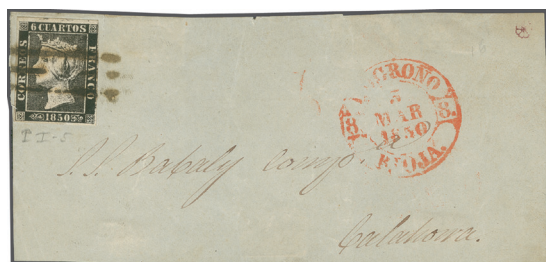 6 CUARTOS
CORREOS
FRANCO
1850
T I-5
LOGROÑO
5
MAR
1850
8
8
RIOJA.
Comp.
Calahorra.